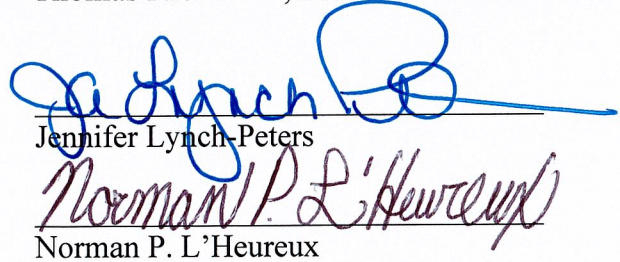 Je Lynch Pe
Jennifer Lynch-Peters
Norman P. L'Heureux
Norman P. L'Heureux